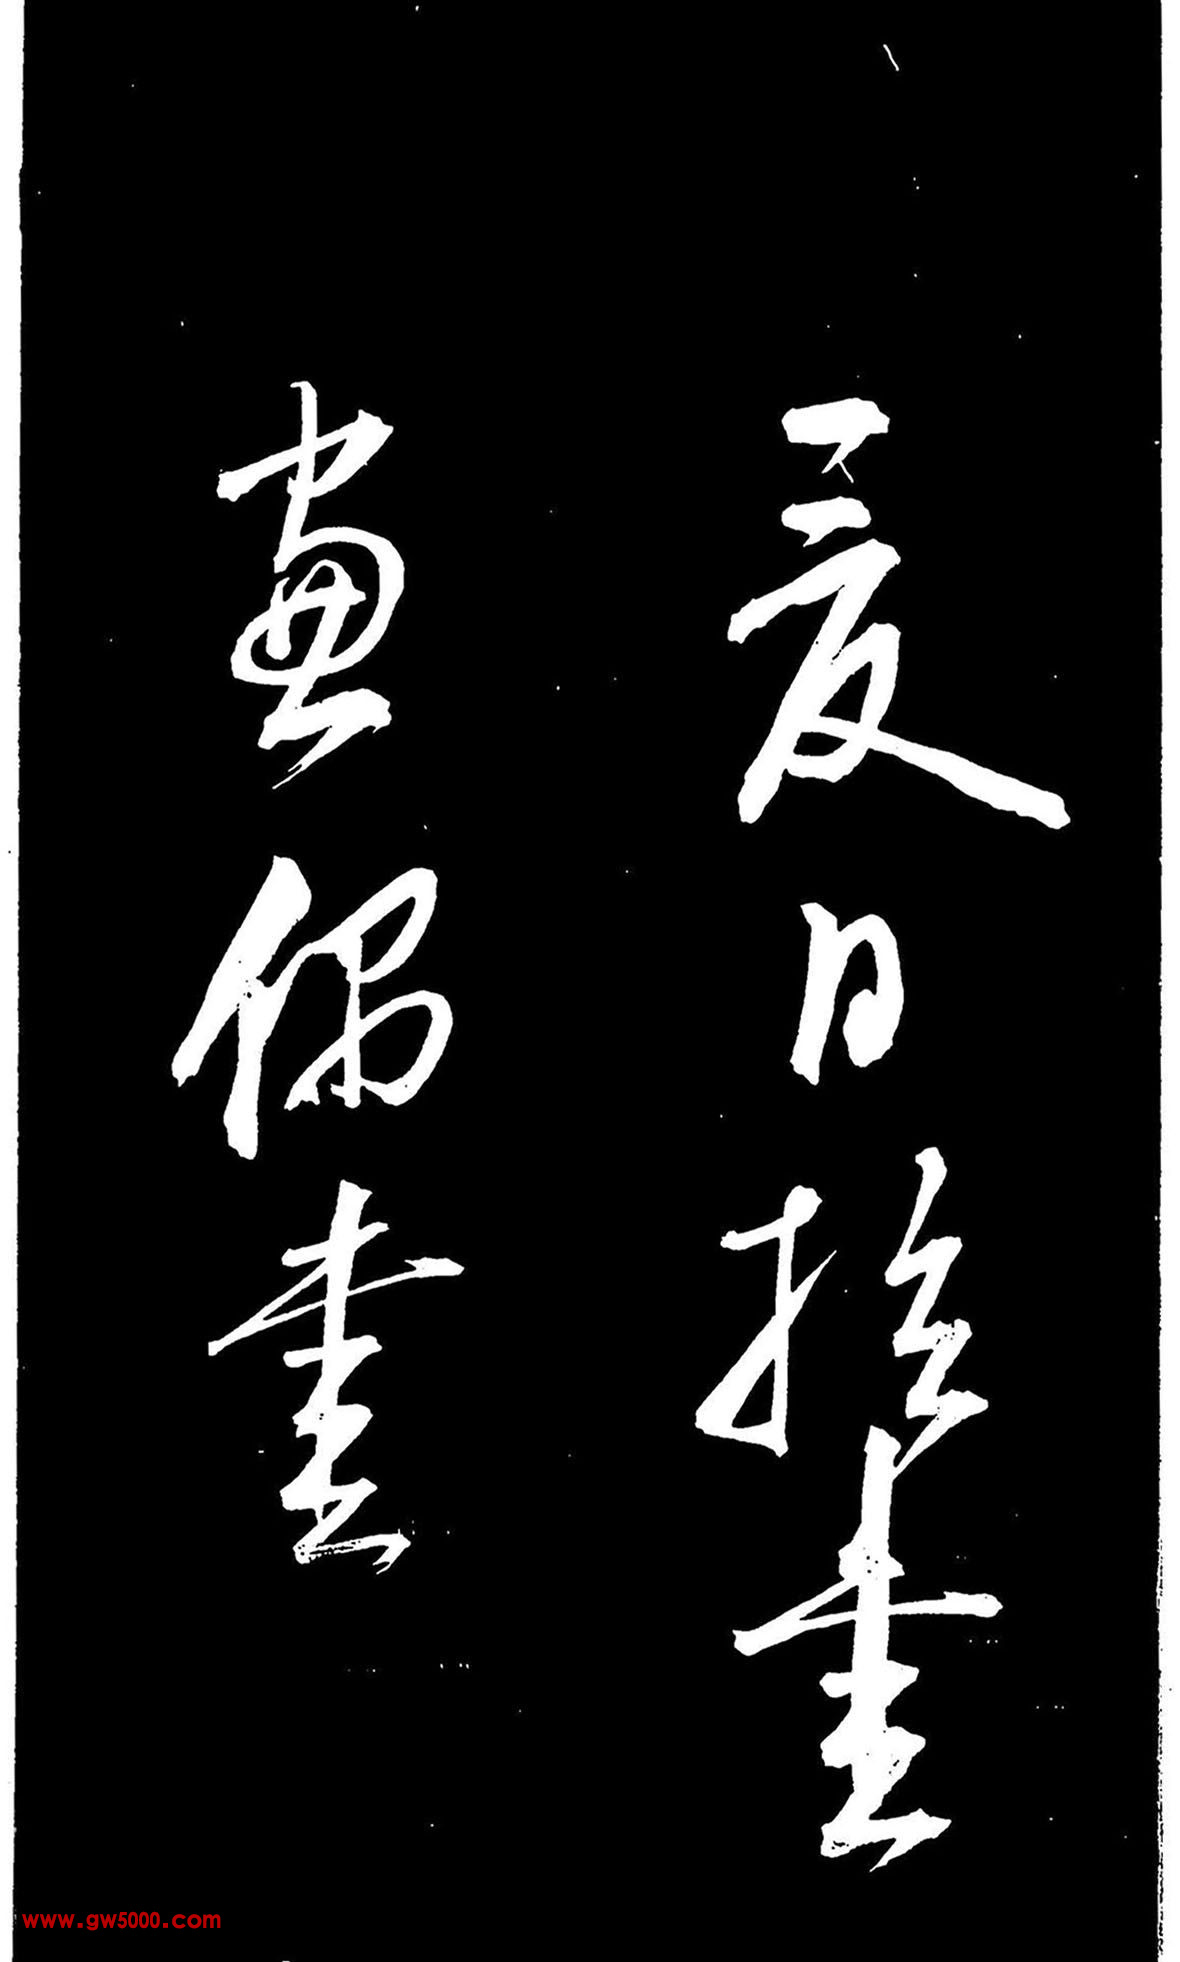 夏日書
畫偶書
www.gw5000.com